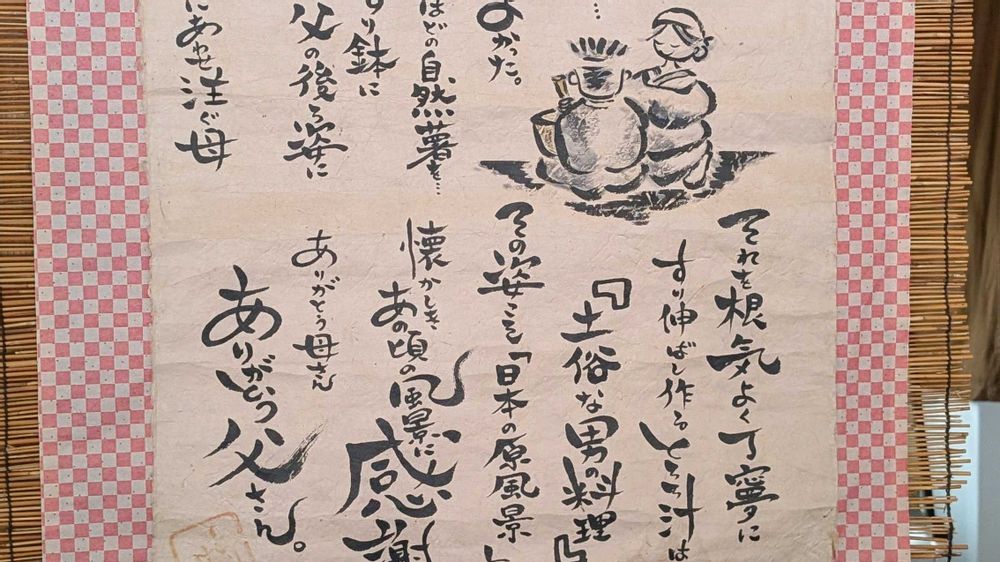 …
よかった。
ほどの自然薯を…
すり鉢に
父の後ろ姿に
にあわせ注ぐ母
それを根気よく丁寧に
すり伸ばし作るとろろ汁は
『土俗な男の料理』
その姿こそ「日本の原風景」
懐かしき
あの頃の風景に
感謝
ありがとう母さん
ありがとう父さん。